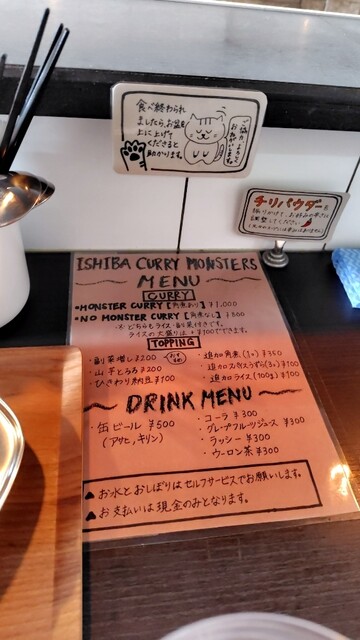 食べ終わられ
ましたら、お盆を
上に上げて
くださると
助かります。
ご協力、よろしく
お願いします。
チリパウダーを
振りかけて、お好みの辛さに
調整してください。
ISHIBA CURRY MONSTERS
MENU
CURRY
・MONSTER CURRY【角煮あり】¥1,000
・NO MONSTER CURRY【角煮なし】¥800
※どちらもライス・副菜付きです。
ライスの大盛りは+¥100でできます。
TOPPING
・副菜増し ¥200
・山芋とろろ ¥200
・ひきわり納豆 ¥100
・追加角煮(1ヶ) ¥350
・追加うずら(3ヶ) ¥100
・追加ライス(100g) ¥100
DRINK MENU
・缶ビール ¥500
(アサヒ、キリン)
・コーラ ¥300
・グレープフルーツジュース ¥300
・ラッシー ¥300
・ウーロン茶 ¥300
▲お水とおしぼりはセルフサービスでお願いします。
▲お支払いは現金のみとなります。